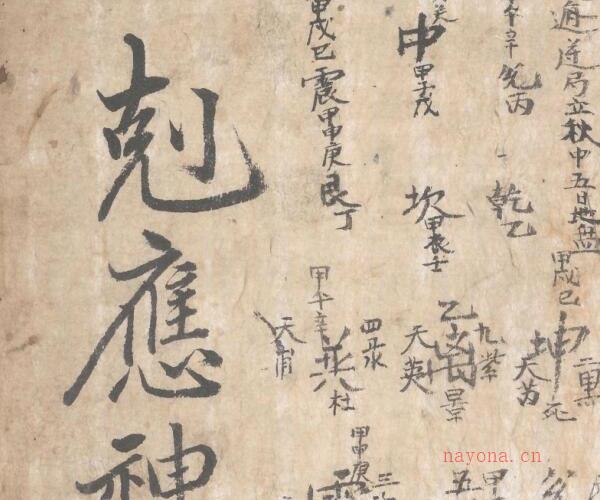 遁逆局立秋中五日地盤
辛 兌丙
乾乙
中甲子戊
坎甲辰壬
甲戌己震甲申庚艮丁
甲戌己
坤
二黑
天芮
死
乙
九紫
天英
景
甲午辛
四
天甫
杜
甲申庚
三
五
甲
剋應神
nayona.cn